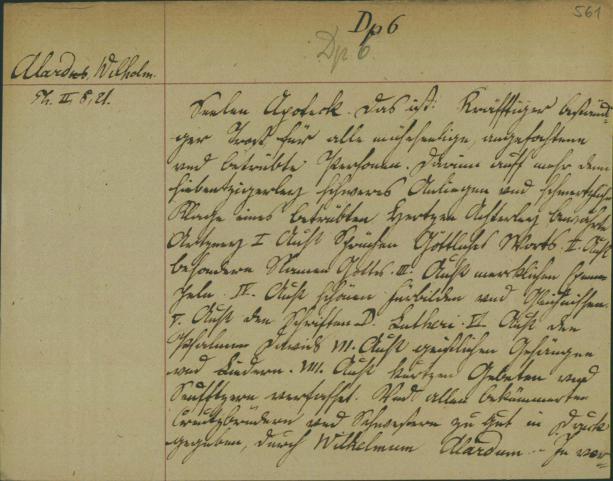 561
Dp 6
Dp 6
Alardus, Wilhelm.
Th. II, 8, 21.
Seelen Apoteck. Das ist: Kräfftiger bestend-
ger Trost für alle mühseelige, angefochtene
vnd betrübte Personen. Darinn auff mehr denn
siebentzigerley schweres Anliegen vnd schmertzliche
Klage eines betrübten Hertzen Achterley bewehrte
Artzney I Auß Sprüchen Göttliches Worts. II. Auß
besondern Namen Gottes. III. Auß mercklichen Exem-
peln. IV. Auß schönen Fürbilden vnd Gleichnissen.
V. Auß den Schrifften D. Lutheri VI. Auß den
Psalmen Davids VII. Auß geistlichen Gesängen
vnd Liedern. VIII. Auß kurtzen Gebeten vnd
Seufftzern verfasset. Vnd allen bekümmerten
Creutzbrüdern vnd Schwestern zu gut in Druck
gegeben, durch Wilhelmum Alardum. – In ver-